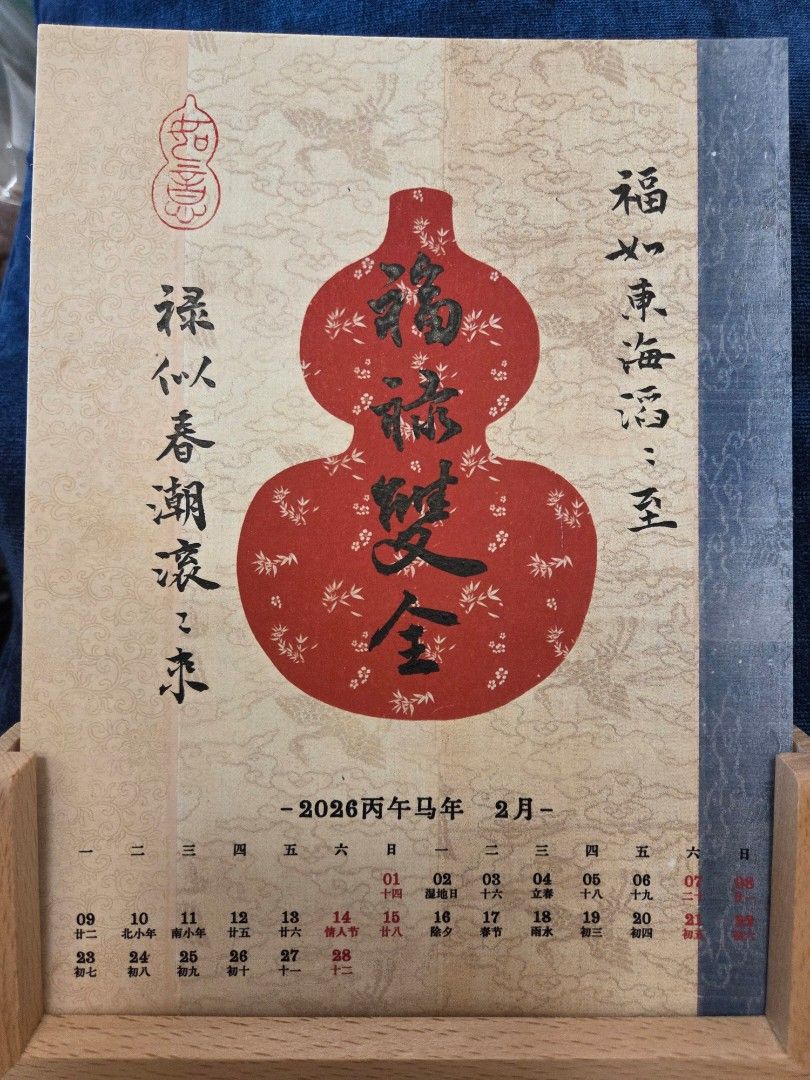 福如東海滔〻至
福禄雙全
如意
禄似春潮滚〻来
-2026丙午马年 2月-
一 二 三 四 五 六 日 一 二 三 四 五 六 日
01 02 03 04 05 06 07 08
十四 湿地日 十六 立春 十八 十九 二十 廿一
09 10 11 12 13 14 15 16 17 18 19 20 21 22
廿二 北小年 南小年 廿五 廿六 情人节 廿八 除夕 春节 雨水 初三 初四 初五 初六
23 24 25 26 27 28
初七 初八 初九 初十 十一 十二